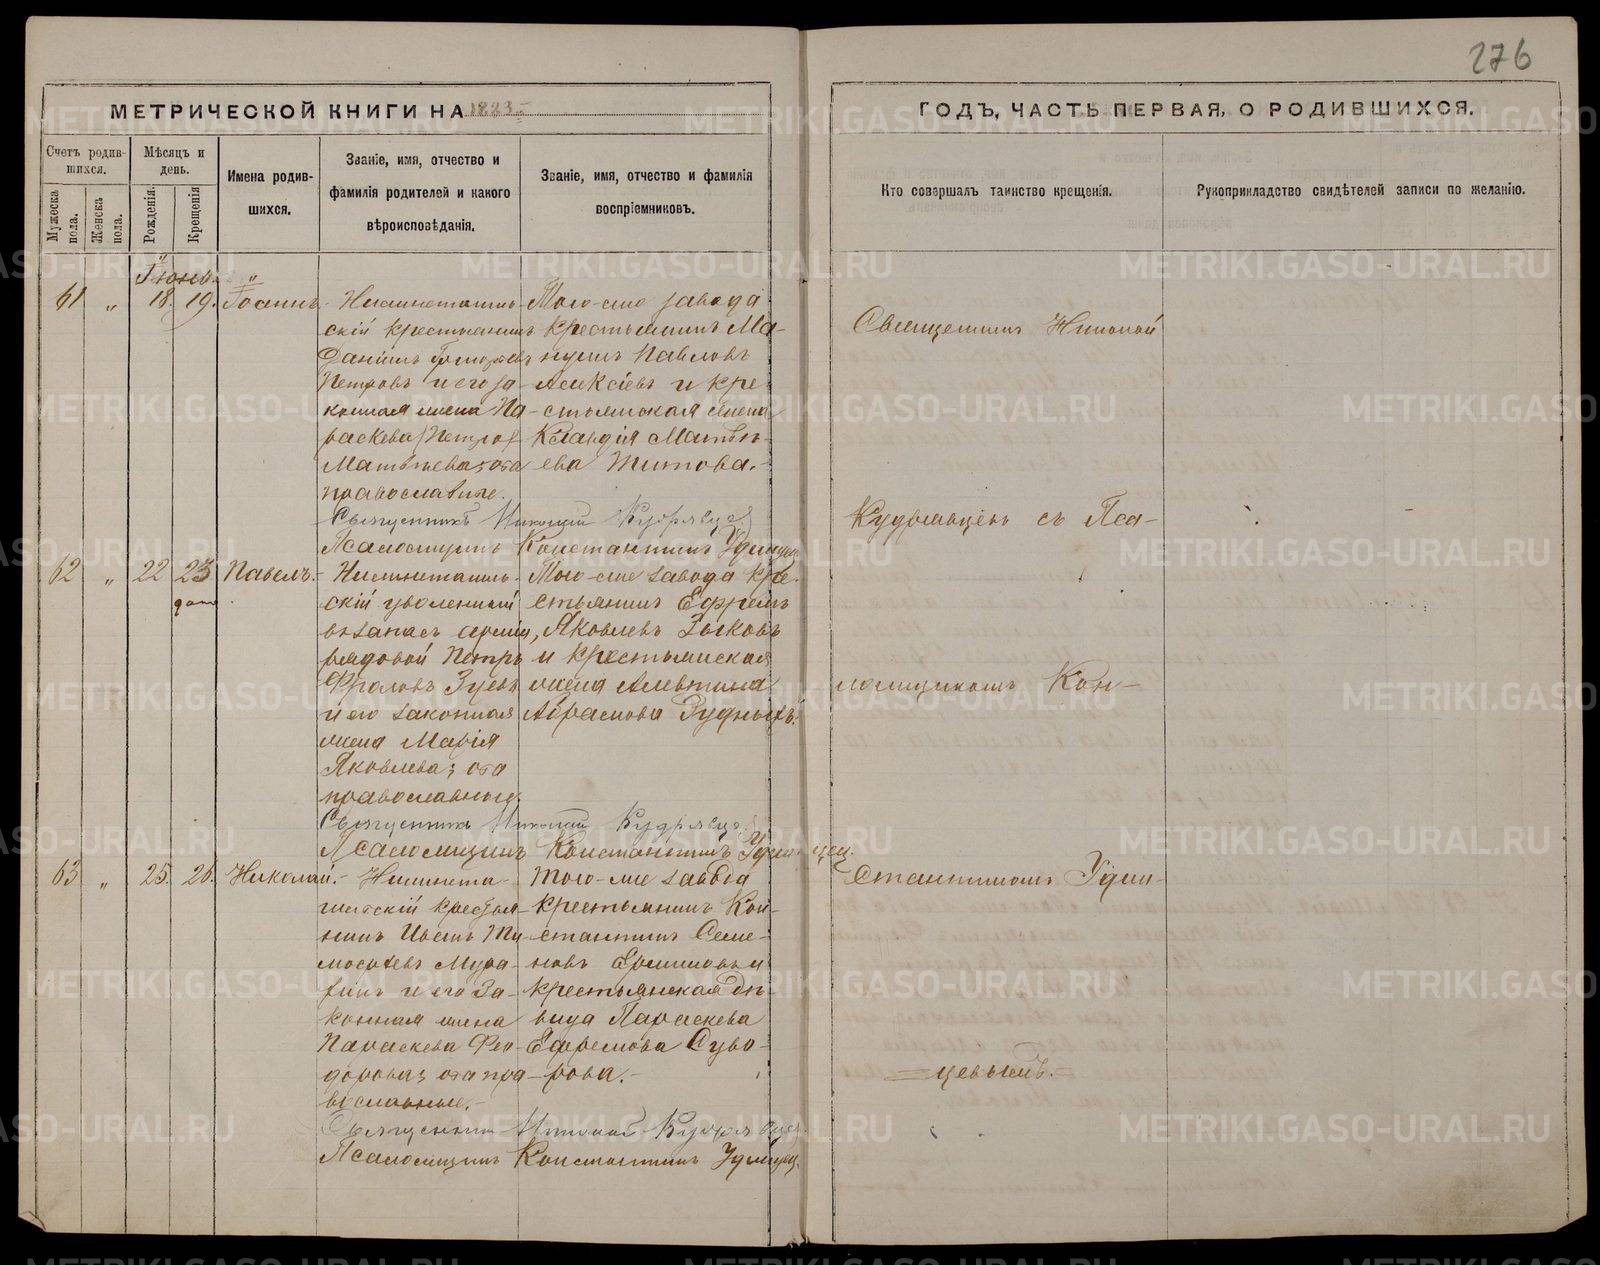 276
МЕТРИЧЕСКОЙ КНИГИ НА 1883 ГОДЪ, ЧАСТЬ ПЕРВАЯ, О РОДИВШИХСЯ.
Счетъ родив-
шихся.
Мужеска пола.
Женска пола.
Мѣсяцъ и
день.
Рожденія.
Крещенія
Имена родив-
шихся.
Званіе, имя, отчество и
фамилія родителей и какого
вѣроисповѣданія.
Званіе, имя, отчество и фамилія
воспріемниковъ.
Кто совершалъ таинство крещенія.
Рукоприкладство свидѣтелей записи по желанію.
Іюнь.
61 „ 18. 19. Іоаннъ
скій крестьянинъ
Петровъ и его за-
конная жена Па-
раскева
православные.
Того-же завода
крестьянинъ Ма-
Павловъ
Алексѣевъ и кре-
стьянская жена
Клавдія Матвѣ-
ева Титова.-
Священникъ Николай Кудрявцев
Псаломщикъ Константинъ Удинцев
62 „ 22 23 Павелъ.-
скій уволенный
въ запасъ арміи,
рядовой Петръ
Фроловъ Зуевъ
и его законная
жена Марія
Яковлева; оба
православные.
Того-же завода кре-
стьянинъ Ефремъ
Яковлевъ Зыковъ
и крестьянская
жена Алевтина
Абрамова Рудныхъ.
Священникъ Николай Кудрявцев
Псаломщикъ Константинъ Удинцев.
63 „ 25. 26. Николай.-
Нижнета-
гильскій крестья-
нинъ Иванъ Ти-
моѳеевъ Мура-
и его за-
конная жена
Параскева Ѳео-
дорова; оба пра-
вославные.-
Того-же завода
крестьянинъ Кон-
стантинъ Семе-
новъ и
крестьянская дѣ-
вица Параскева
Ефремова Суво-
рова.-
Священникъ Николай Кудрявцев
Псаломщикъ Константинъ Удинцев.
Священникъ Николай
Кудрявцевъ съ Пса-
ломщикомъ Кон-
стантиномъ Удин-
цевымъ.
METRIKI.GASO-URAL.RU